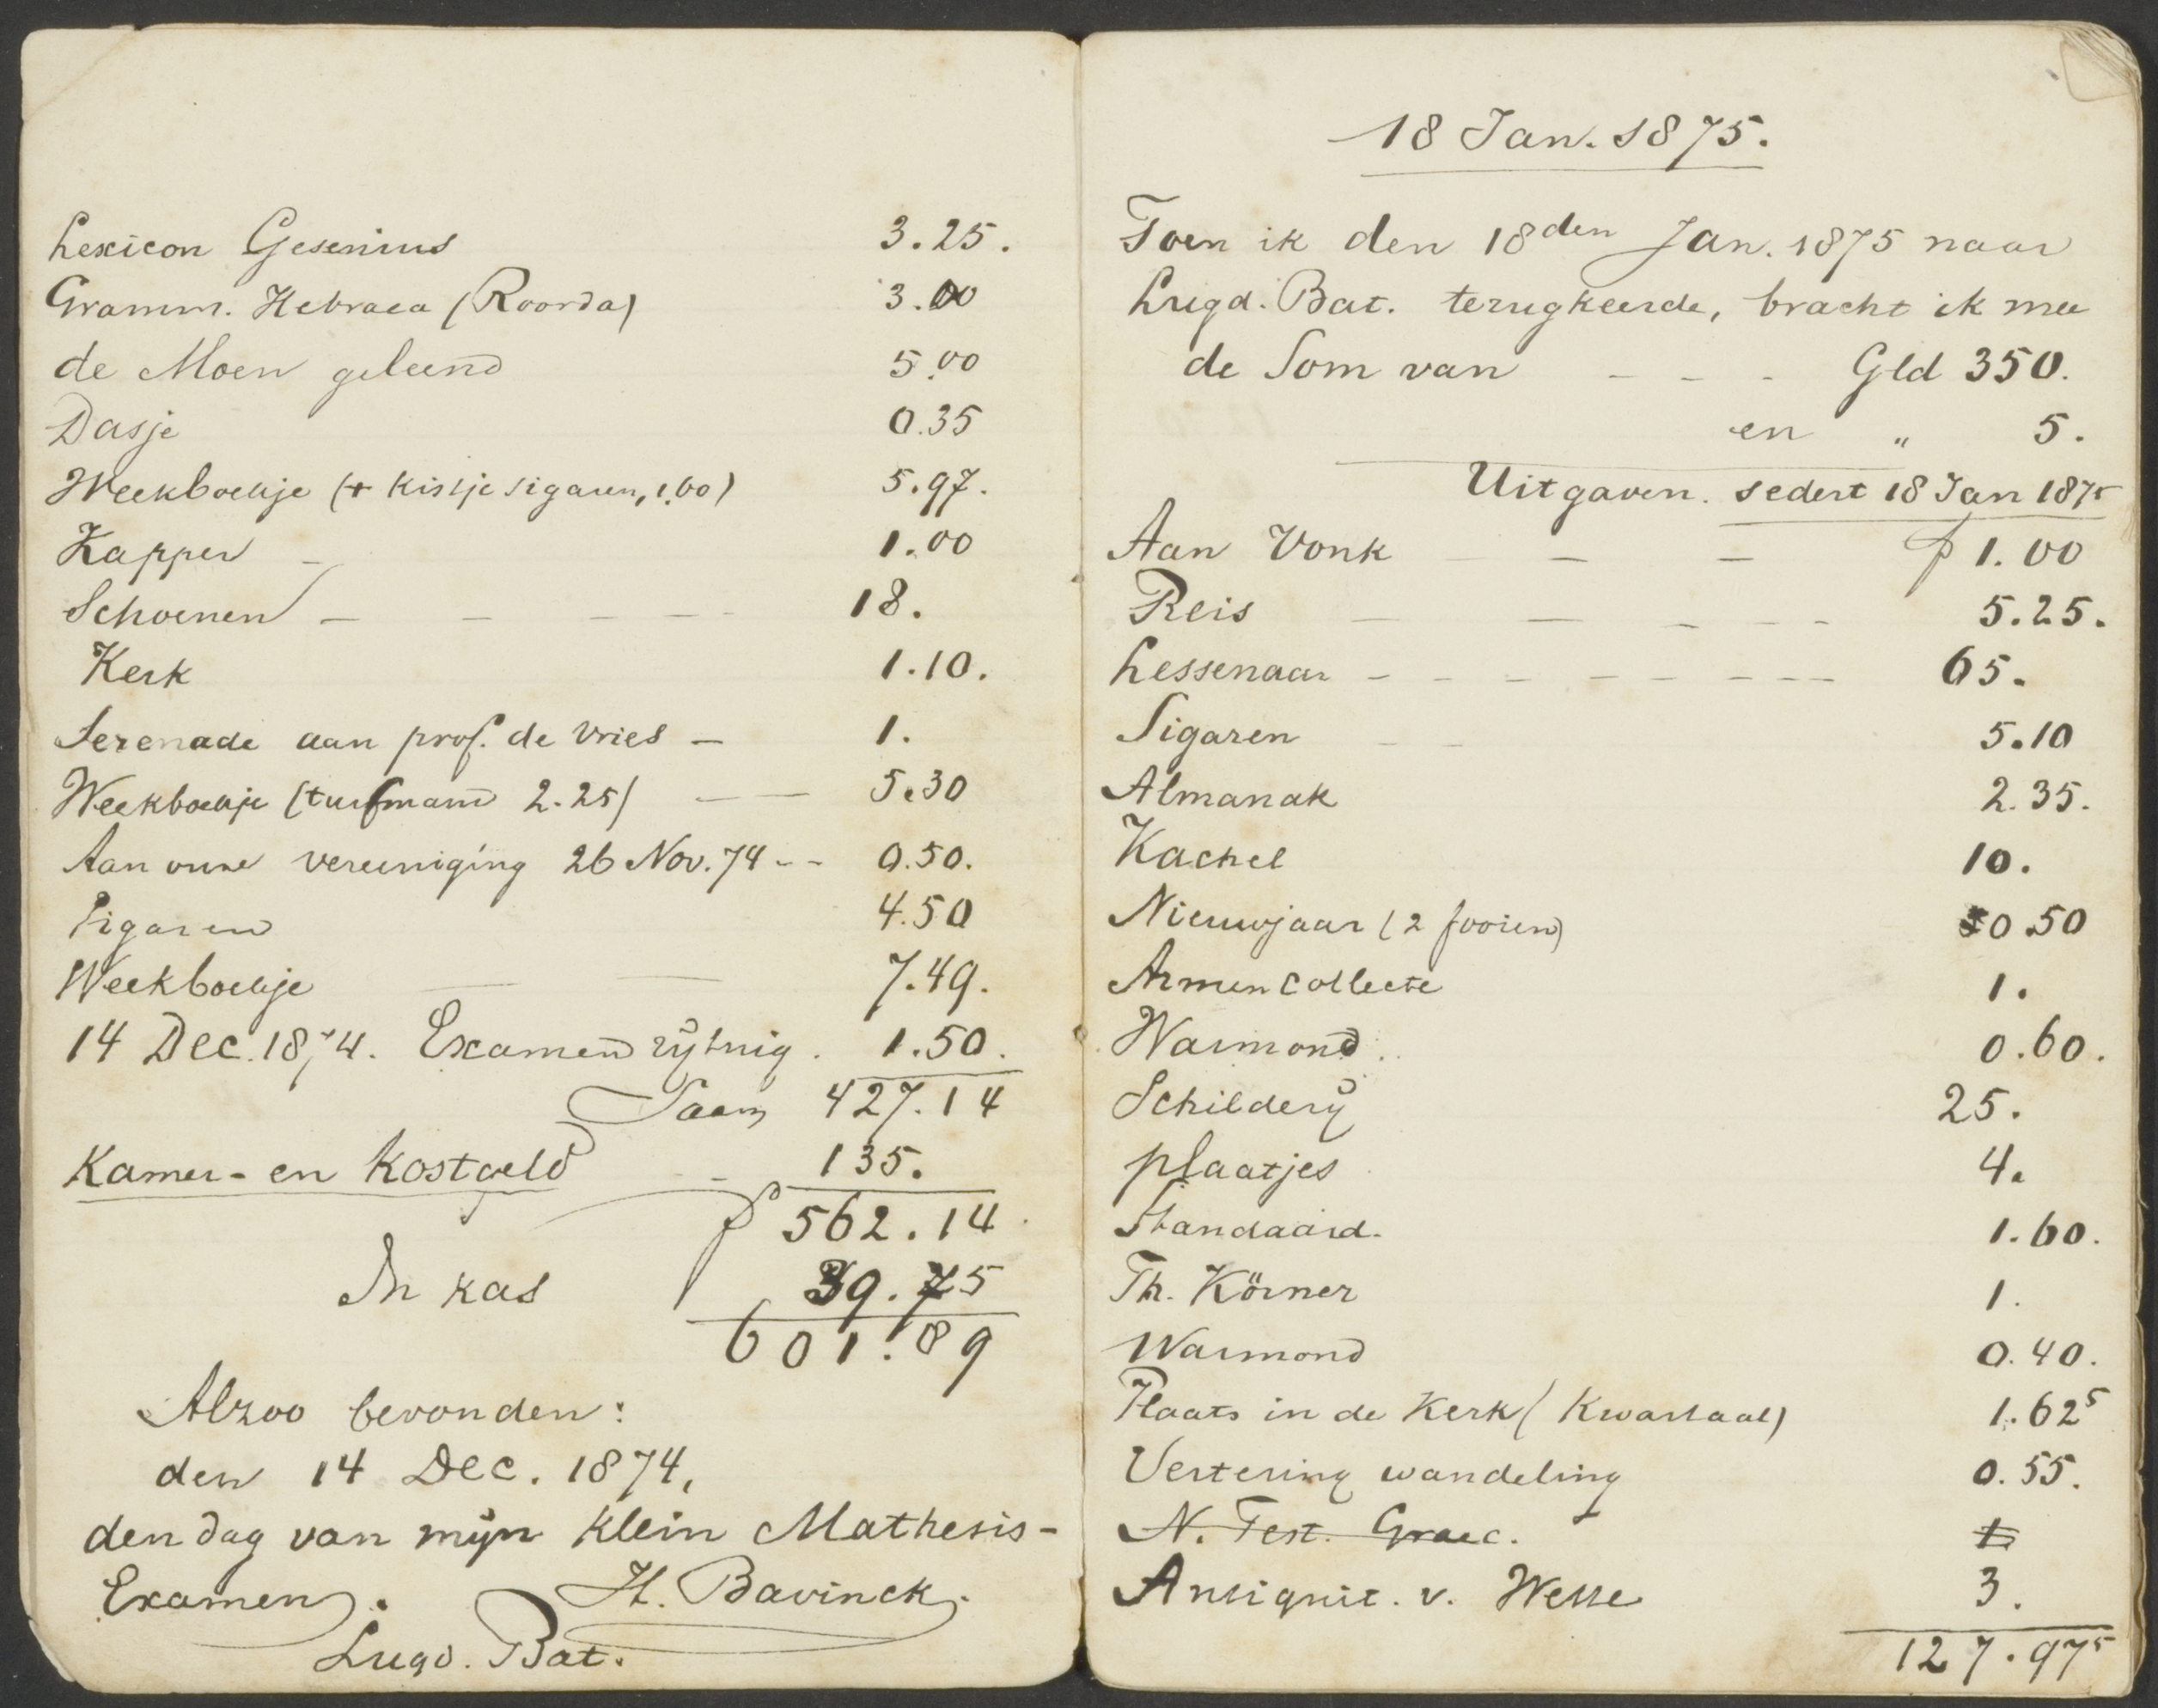 Lexicon Gesenius 3.25.
Gramm. Hebraea (Roorda) 3.00
de Moen geleend 5.00
Dasje 0.35
Weekboekje (+ kistje sigaren, 1.60) 5.97.
Kapper – 1.00
Schoenen – – – – – 18.
Kerk 1.10.
Serenade aan prof. de Vries – 1.
Weekboekje (turfmand 2.25) – – 5.30
Aan onze vereeniging 26 Nov. 74 - - 0.50.
Sigaren 4.50
Weekboekje 7.49.
14 Dec. 1874. Examen rijtuig. 1.50.
Saam 427.14
Kamer- en Kostgeld – 135.
ƒ 562.14
In kas 39.75
601.89
Alzoo bevonden:
den 14 Dec. 1874,
den dag van mijn Klein Mathesis-
Examen. H. Bavinck.
Lugd. Bat.
18 Jan. 1875.
Toen ik den 18den Jan. 1875 naar
Lugd. Bat. terugkeerde, bracht ik mee
de Som van – – – Gld 350.
en " 5.
Uitgaven. sedert 18 Jan 1875
Aan Vonk – – – ƒ 1.00
Reis – – – – – 5.25.
Lessenaar – – – – – – – – 65.
Sigaren – – 5.10
Almanak 2.35.
Kachel 10.
Nieuwjaar (2 fooien) 0.50
Armencollecte 1.
Warmond. 0.60.
Schilderij 25.
plaatjes 4.
Standaard. 1.60.
Th. Körner 1.
Warmond 0.40.
Plaats in de Kerk (Kwartaal) 1.62⁵
Vertering wandeling 0.55.
N. Test. Graec. 1
Antiquit. v. 3.
127.97⁵